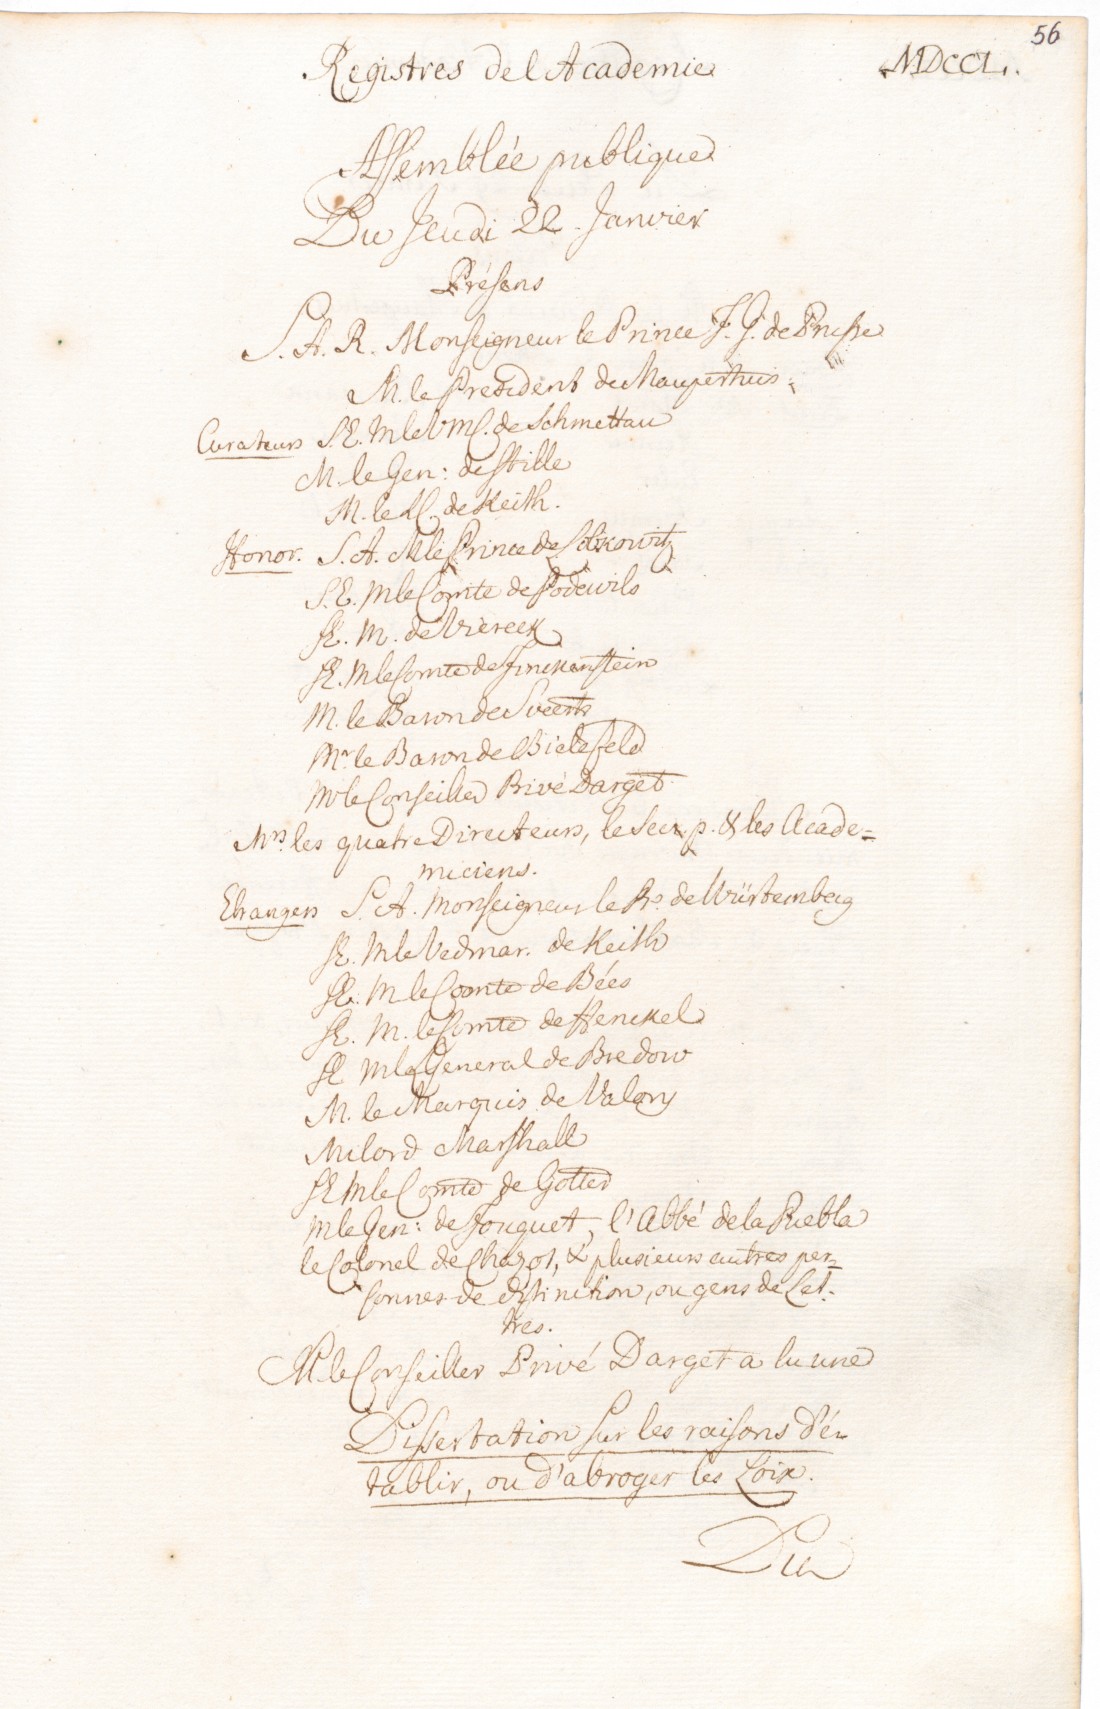 56
Registres de l Academie MDCCL.
Assemblée publique
Du Jeudi 22. Janvier
Présens
S. A. R. Monseigneur le Prince F. G. de Prusse
M. le President de Maupertuis.
Curateurs S. E. M le V M. de Schmettau
M. le Gen: de Stille
M. le de Keith.
Honor. S. A. M le Prince de Lobkowitz
S. E. M le Comte de Podewils
SE. M. de Viereck
SE. M le Comte de Finckenstein
M. le Baron de Sweerts
Mr. le Baron de Bielefeld
Mr le Conseiller Privé Darget
Mrs. les quatre Directeurs, le Secr. p. & les Acade=
miciens.
Etrangers S. A. Monseigneur le Pr. de Würtemberg
SE. M le Vedmar. de Keith
SE. M le Comte de Bées
SE. M. le Comte de Henckel
SE M le General de Bredow
M. le Marquis de Valory
Milord Marshall
SE M le Comte de Gotter
M le Gen: de Fouquet, l'Abbé de la Puebla
le Colonel de Chazot, & plusieurs autres per=
sonnes de distinction, ou gens de Let-
tres.
M. le Conseiller Privé Darget a lu une
Dissertation sur les raisons d'é-
tablir, ou d'abroger les Loix.
Du